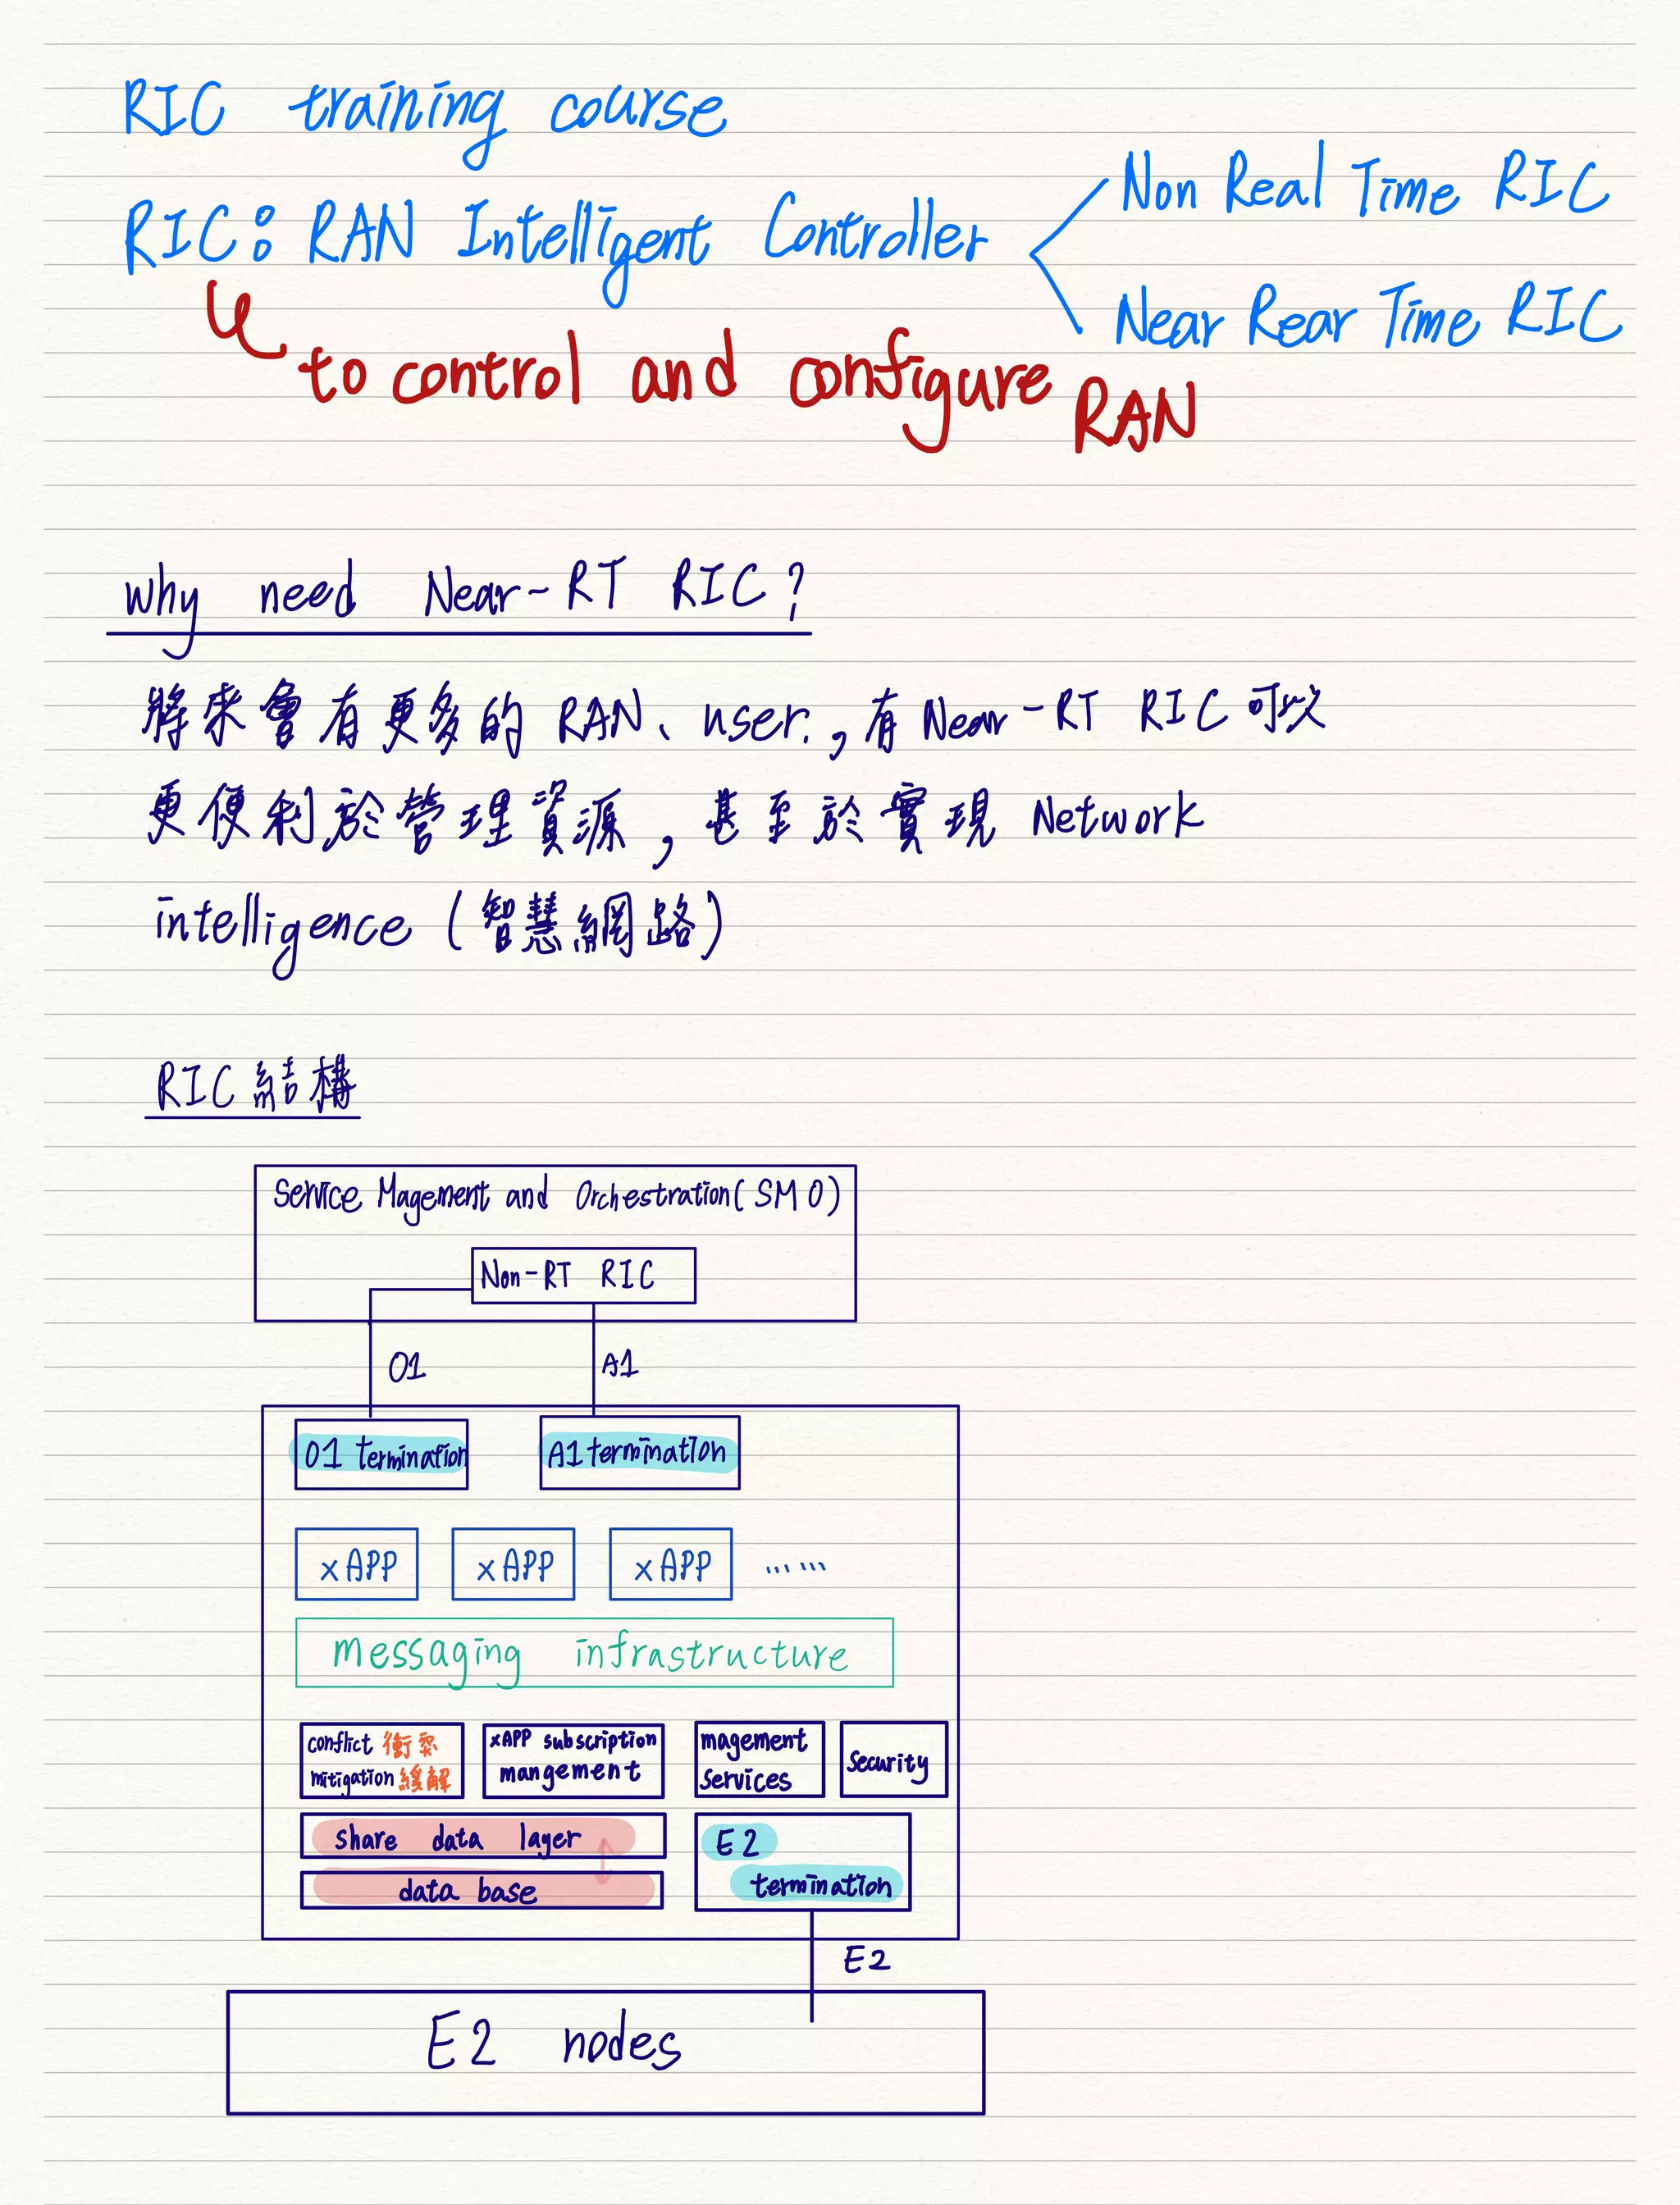 RIC training course
RIC: RAN Intelligent Controller
Non Real Time RIC
Near Rear Time RIC
to control and configure RAN
why need Near-RT RIC?
將來會有更多的 RAN、user.,有 Near-RT RIC 可以
更便利於管理資源,甚至於實現 Network
intelligence (智慧網路)
RIC 結構
Service Magement and Orchestration (SMO)
Non-RT RIC
O1 A1
O1 termination A1 termination
xAPP xAPP xAPP ......
messaging infrastructure
conflict 衝突
mitigation 緩解
xAPP subscription
mangement
magement
Services
Security
share data layer
data base
E2
termination
E2
E2 nodes